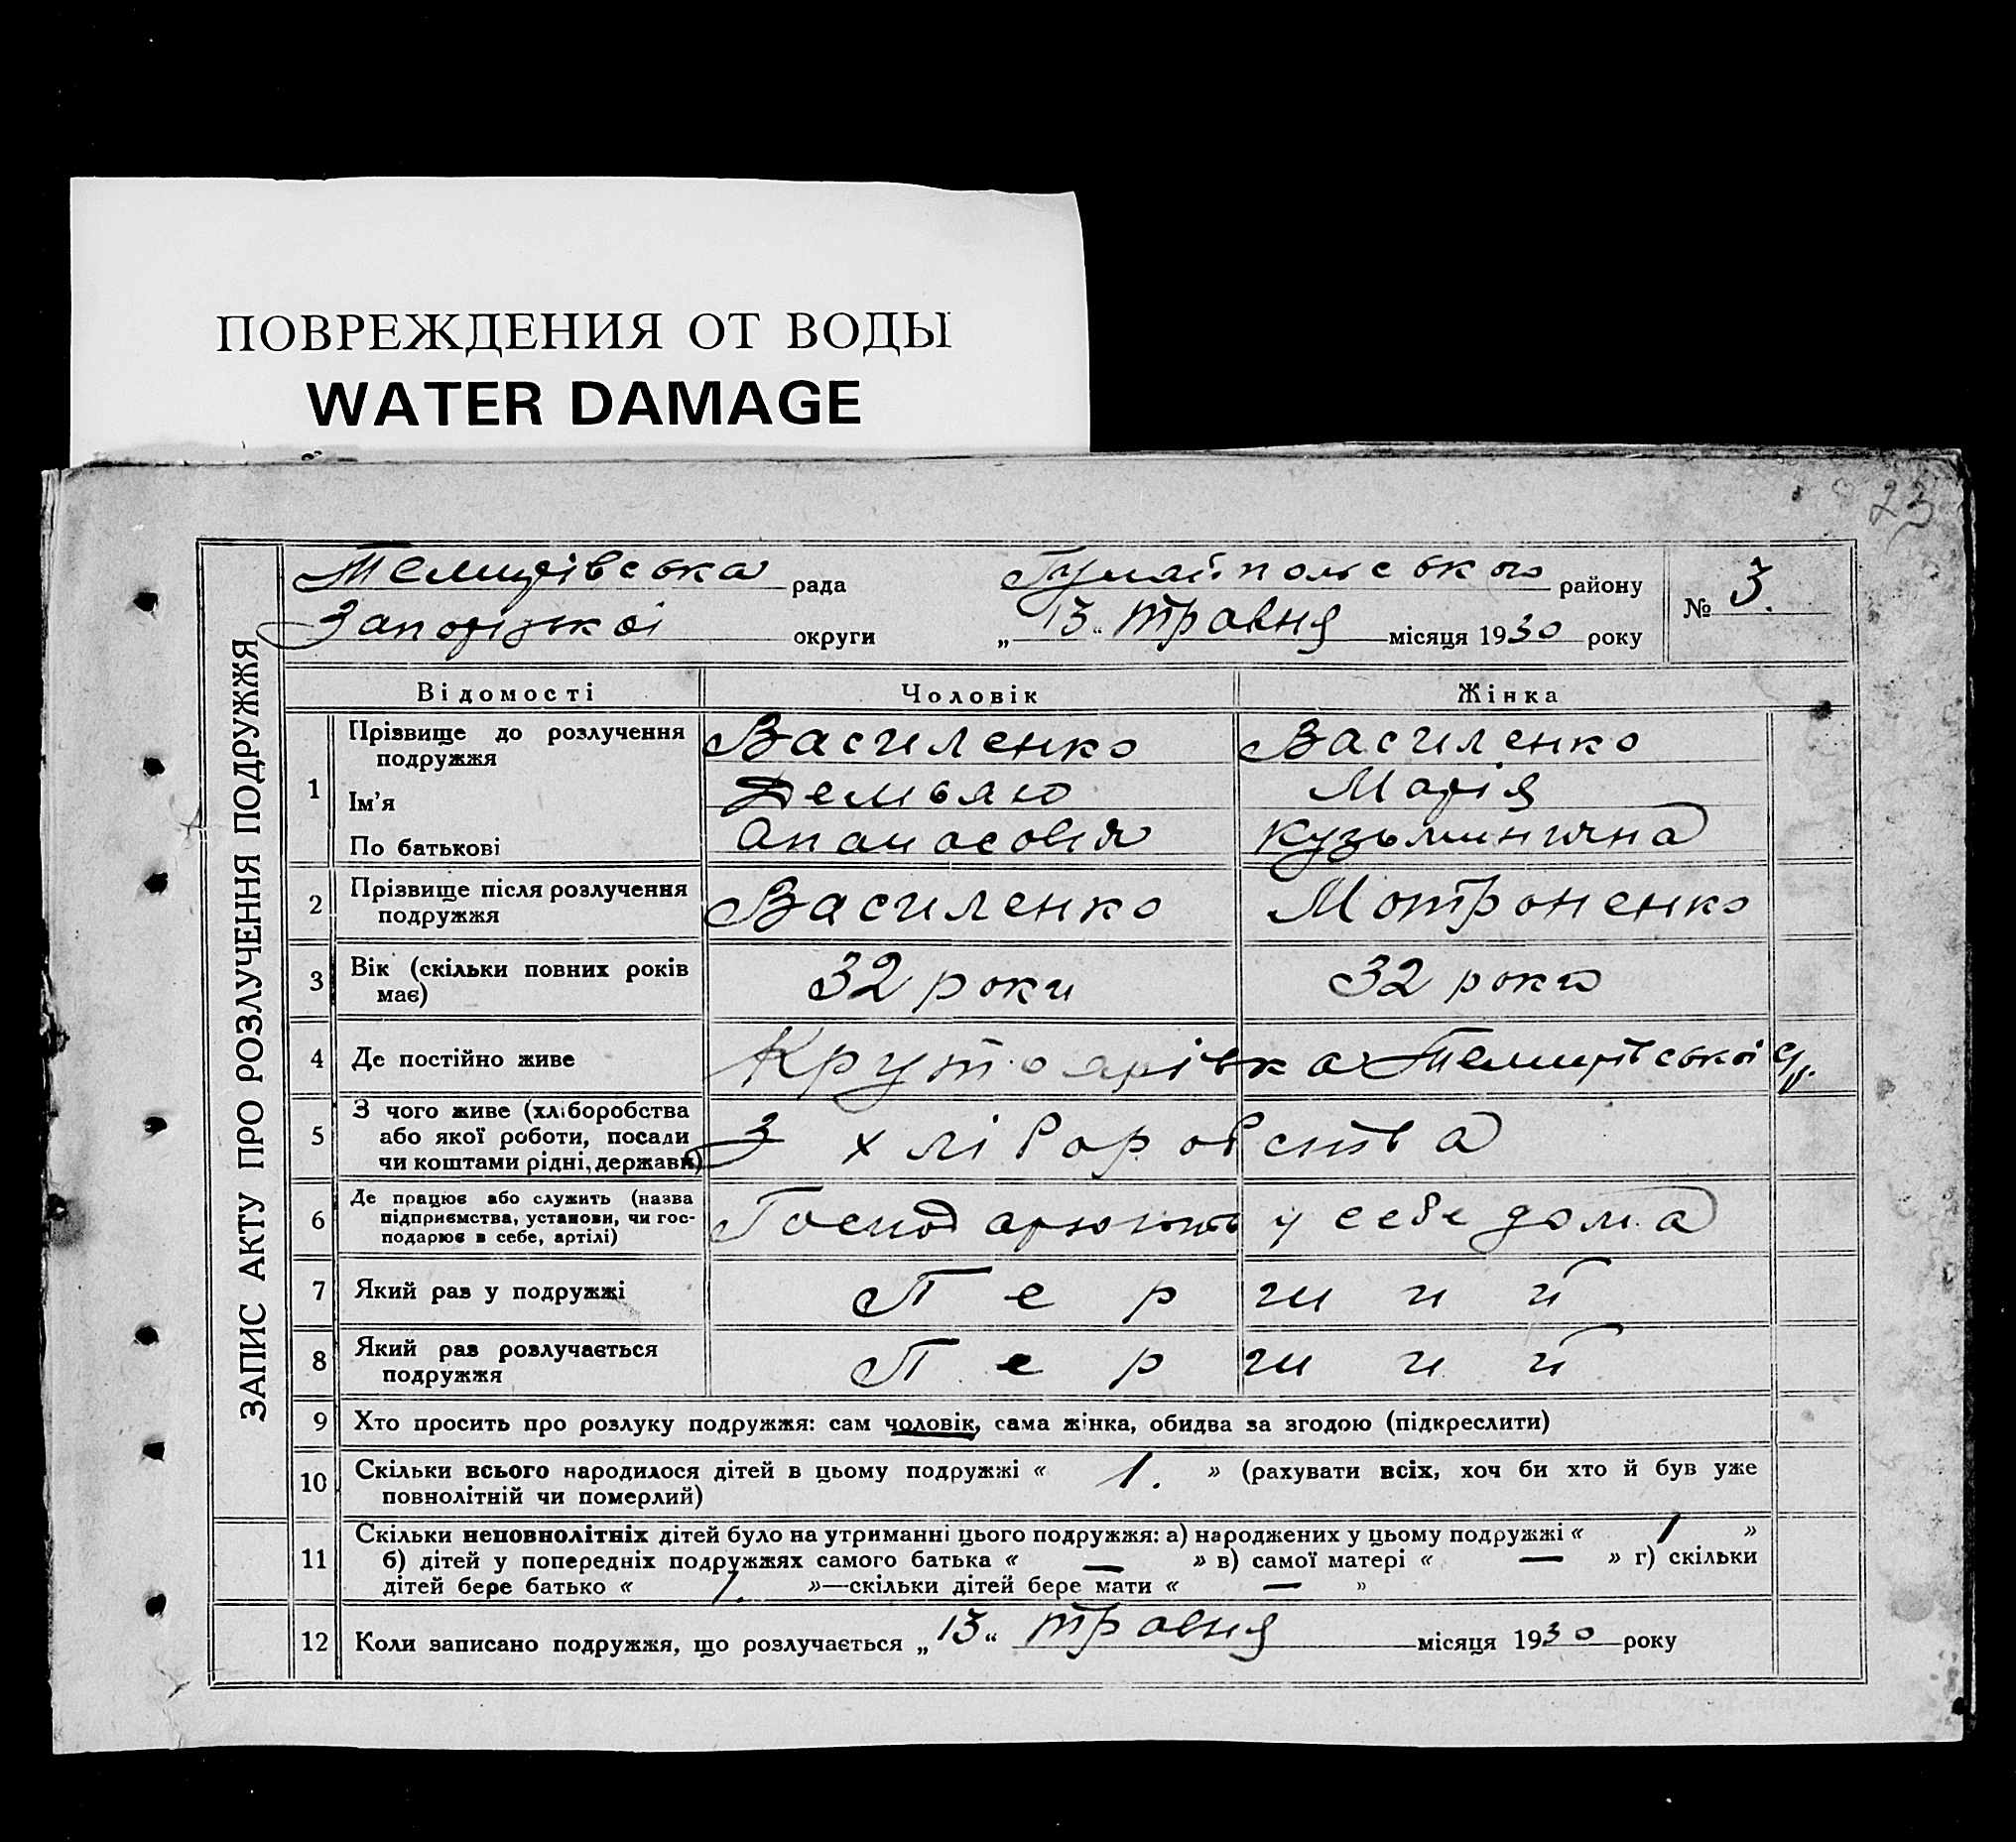 ПОВРЕЖДЕНИЯ ОТ ВОДЫ
WATER DAMAGE
23
Темирівська рада Гуляйпольського району № 3.
Запорізької округи „13“ травня місяця 1930 року
ЗАПИС АКТУ ПРО РОЗЛУЧЕННЯ ПОДРУЖЖЯ
Відомості Чоловік Жінка
1 Прізвище до розлучення подружжя Василенко Василенко
Ім'я Демьян Марія
По батькові Опанасович Кузьминична
2 Прізвище після розлучення подружжя Василенко Мотроненко
3 Вік (скільки повних років має) 32 роки 32 роки
4 Де постійно живе Крутоярівка Темирівської с/р.
5 З чого живе (хліборобства або якої роботи, посади чи коштами рідні, держави) З хліборобства
6 Де працює або служить (назва підприємства, установи, чи господарює в себе, артілі) Господарюють у себе дома
7 Який раз у подружжі Перший
8 Який раз розлучається подружжя Перший
9 Хто просить про розлуку подружжя: сам чоловік, сама жінка, обидва за згодою (підкреслити)
10 Скільки всього народилося дітей в цьому подружжі « 1. » (рахувати всіх, хоч би хто й був уже
повнолітній чи померлий)
11 Скільки неповнолітніх дітей було на утриманні цього подружжя: а) народжених у цьому подружжі « 1 »
б) дітей у попередніх подружжях самого батька « — » в) самої матері « — » г) скільки
дітей бере батько « 1. »—скільки дітей бере мати « — »
12 Коли записано подружжя, що розлучається „13“ травня місяця 1930 року